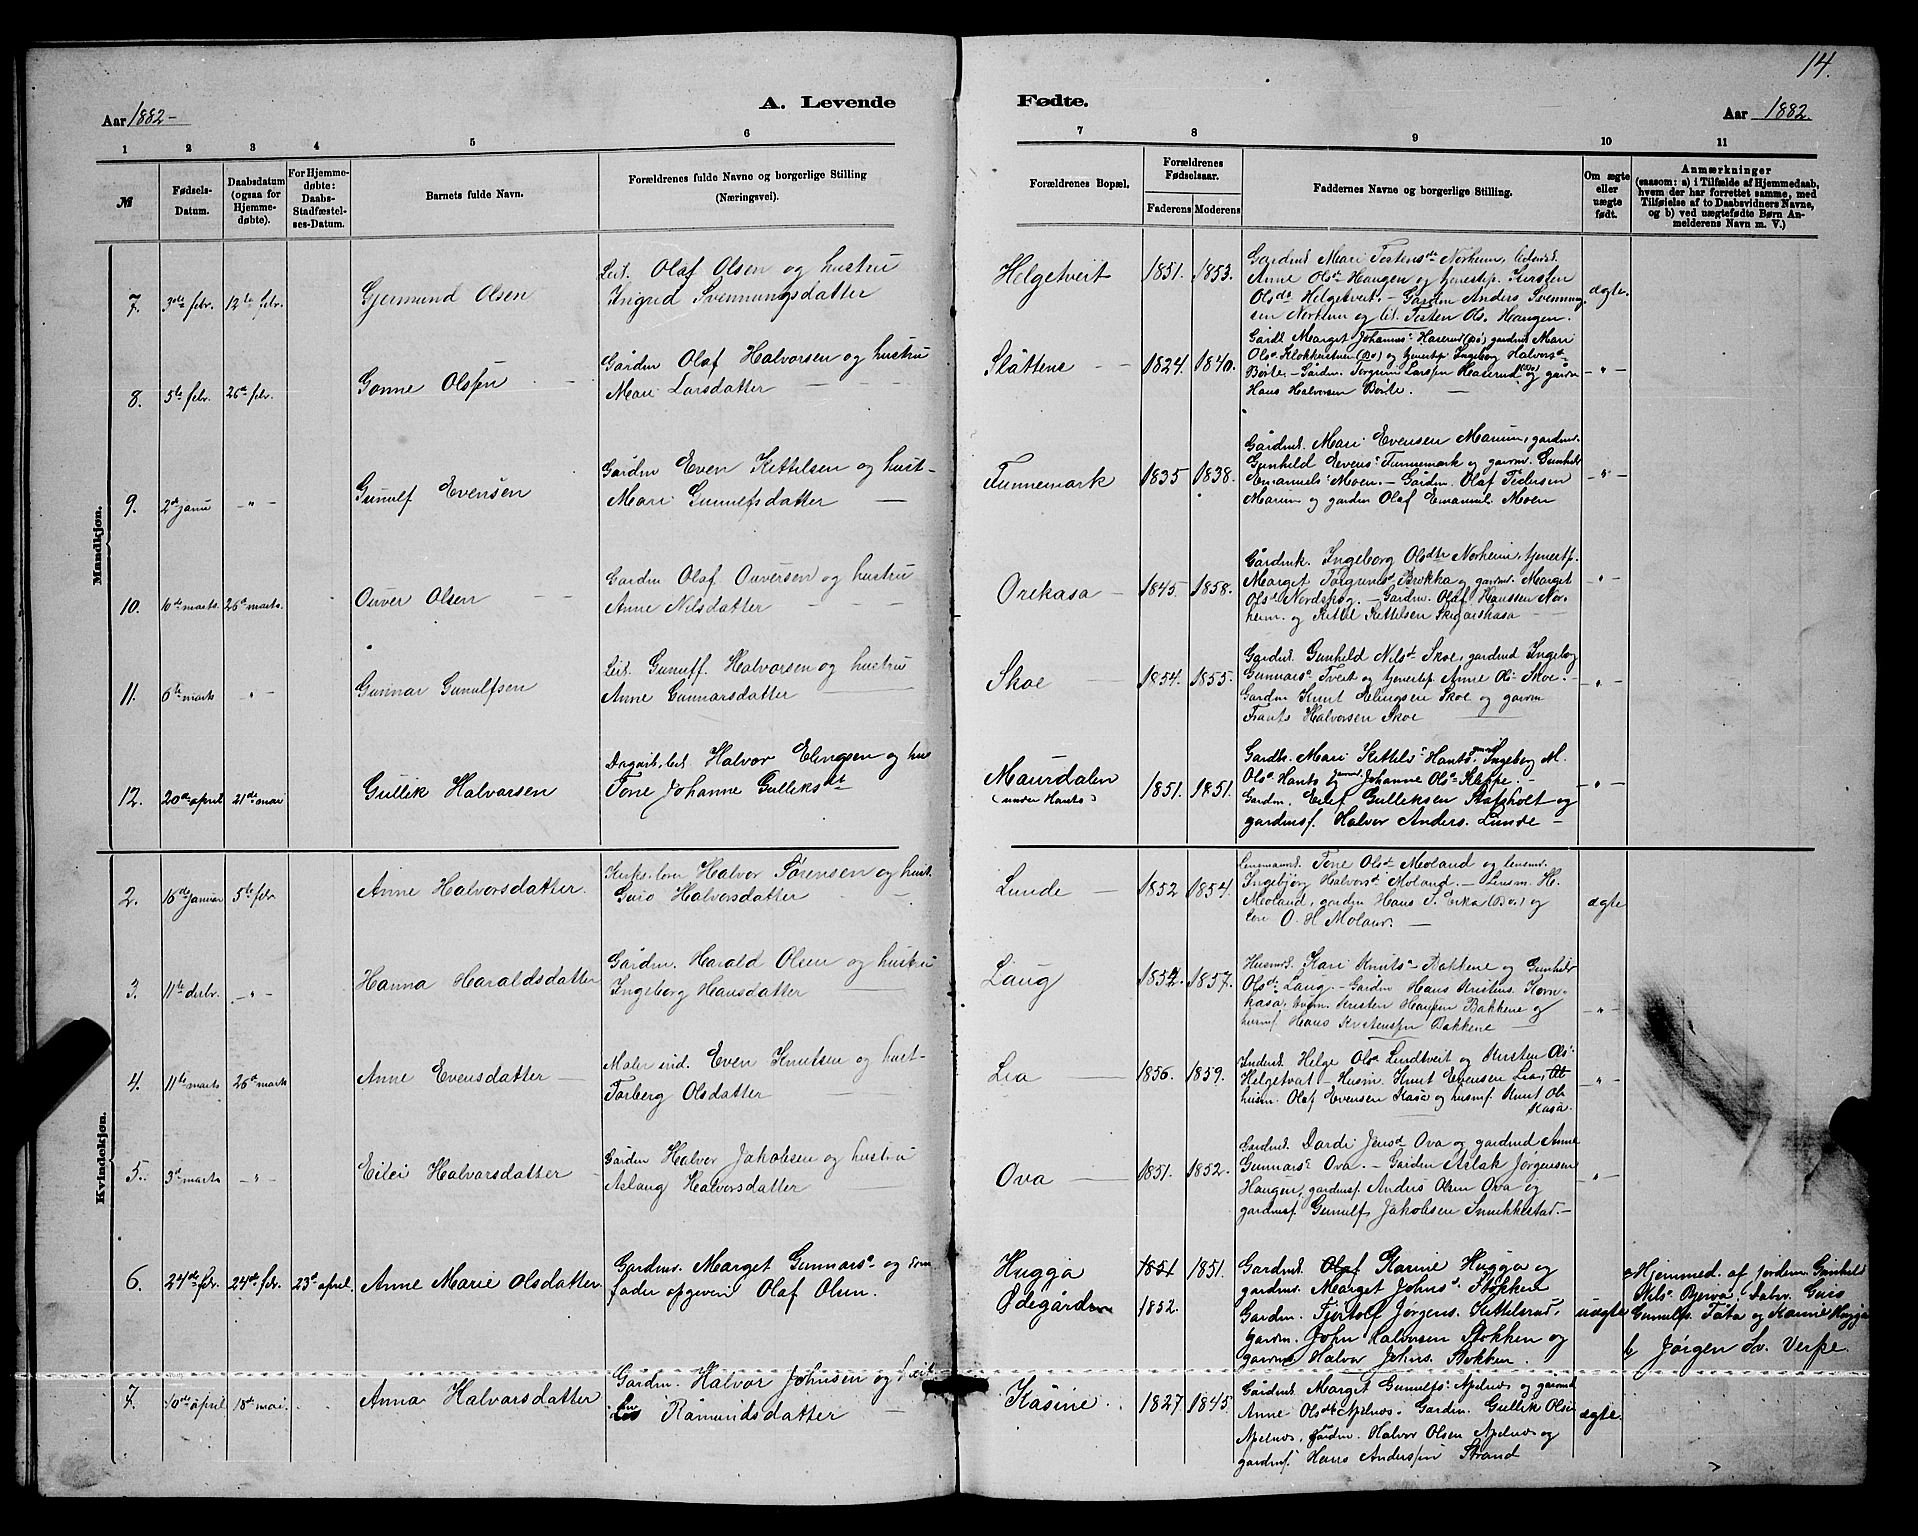 14.
A. Levende Fødte.
Aar 1882 -
Aar 1882.
1 2 3 4 5 6 7 8 9 10 11
№
Fødsels-
Datum.
Daabsdatum
(ogsaa for
Hjemme-
døbte).
For Hjemme-
døbte:
Daabs-
Stadfæstel-
ses-Datum.
Barnets fulde Navn.
Forældrenes fulde Navne og borgerlige Stilling
(Næringsvei).
Forældrenes Bopæl.
Forældrenes
Fødselsaar.
Faderens Moderens
Faddernes Navne og borgerlige Stilling.
Om ægte
eller
uægte
født.
Anmærkninger
(saasom: a) i Tilfælde af Hjemmedaab,
hvem der har forrettet samme, med
Tilføielse af to Daabsvidners Navne,
og b) ved uægtefødte Børn An-
melderens Navn m. V.)
Mandkjøn.
7. 3de febr. 12te febr. Gjermund Olsen
Leil. Olaf Olsen og hustru
Ingrid Svennungsdatter
Helgetveit 1851. 1853.
Gardmd. Mari Tostensdr Norheim,
Anne Olsdr Haugen og tjenestep. Kersten
Olsdr Helgetveit. - Gardm Anders Svennung
sen Norheim og leil. Tosten Ols. Haugen.
ægte.
8. 5te febr. 26de febr. Gonne Olsen
Gårdm Olaf Halvorsen og hustru
Mari Larsdatter
Slåttene 1824. 1840.
Gardk Marget Johannes Haserud (Bø) gardmd Mari
Ols. og tjenestp Ingeborg Halvors
Bøile. - Gårdm. Torgrim Larssen Haserud (Bø) og gårdm
Hans Halvorsen Bøile.
- " -
9. 2de janu - " - Gunulf Evensen
Gårdm Even Kittilsen og hust-
Mari Gunulfsdatter
Tunnemark 1835 1838.
Gårdmd. Mari Evensen Marum, gardm.
Gunhild Evens Tunnemark og garm. Gunhild
Emanuels Moen. - Gårdm. Olaf Pedersen
Marum og gardm Olaf Emanuel. Moen
- " -
10. 10de marts. 26de marts. Ouver Olsen
Gardm Olaf Ouversen og hustru
Anne Nilsdatter
Orekasa 1845. 1858.
Gårdmk. Ingeborg Olsdtr Norheim, tjenertp.
Marget Torgrims Brokka og garm. Marget
Olsdr Nordskog. - Gardm. Olaf Hanssen Nor-
heim. og Kittil Kittelsen Skigarskasa
- " -
11. 6te marts - " - Gunnar Gunulfsen
Leil. Gunulf. Halvorsen og hustru
Anne Gunnarsdatter
Skoe 1854. 1855.
Gardmd. Gunhild Nilsdr Skoe, gardmd Ingebog
Gunnars Tveit og tjenertp Anne Ols Skoe.
Gardm Knut Elingsen Skoe og garm
Frants Halvorsen Skoe
- " -
12. 20de april 21de mai Gullik Halvorsen
Dagarb. leil. Halvor Elingsen og hu
Tone Johanne Gulliksdt
Maurdalen
(under Hanto) 1851. 1851.
Gardk. Mari Kittils Hanto, Ingebog M.
Ols. Hanto og Johanne Ols. Kleppe.
Gardm. Eilef Gulleksen Stafsholt og
gardmsf. Halvor Anders. Lunde -
- " -
Kvindekjøn.
2. 16de januar 5te febr Anne Halvorsdatter.
Halvor Sørensen og hust.
Guro Halvorsdatter
Lunde 1852 1854.
Lensmannd. Tone Olsdr Moland og lensm.
Ingebjør Halvorsd Moland. - Lensm. H.
Moland, gardm Hans S. Erka (Bø.) og
O. H Moland.
ægte
3. 11te debr. - " - Hanna Haraldsdatter
Gårdm. Harald Olsen og hustru
Ingeborg Hansdatter
Laug 1857. 1857.
Husmd. Kari Knuts Bakkene og Gunhild
Olsdr Laug - Gårdm Hans Kristens. Korn-
kasa, husm. Kersten Hanssen Bakkene og
husmf. Hans Kristenssen Bakkene
- " -
4. 11te marts 26de marts Anne Evensdatter
Maler ind. Even Knutsen og hust-
Torberg Olsdatter
Lia 1856. 1859.
Inderst. Helge Olsd Lundtveit og Kersten Ols
Helgetvat - Husm. Knut Evensen Lia,
husm. Olaf Evensen Kasa og husmf. Knut Ols
Kasa.
- " -
5. 3de marts - " - Eilei Halvarsdatter
Gårdm Halvor Jakobsen og hustru
Aslaug Halvorsdatter
Ova 1851. 1852.
Gardmd. Dordi Jensdr Ova og gardmd Anne
Gunnars Ova. - Gardm Aslak Jørgensen
Haugen, gardmsf. Anders Olsen Ova og
gardmsf Gunulf Jakobsen Smukkestad. -
- " -
6. 24de febr. 24de febr. 23de april. Anne Marie Olsdatter
Gardmd. Marget Gunnars og som
fader opgiven Olaf Olsen.
Hugga
Ødegården 1851 1851.
1852.
Gardmd. Olaf Karine Hugga og
gardmd. Marget Johns Stokken
Gardm. Tjostolf Jørgens. Kittilsrud,
Gardm. John Halvorsen Stokken og
garm Halvor Johns. Stokken.
uægte
a Hjemmed. af jordem. Gunhild
Nils. Bjerva. Guro
Gunulfs. Tåta og Karine Hugga
b Jørgen Sv. Verpe.
7. 10de april 18de mai. Anna Halvarsdatter
Gårdm. Halvor Johnsen og hust-
Råmundsdatter
Kåsine 1827 1845.
Gårdmd. Marget Gunulfs Apelnæs og gårmd
Anne Olsdtr Apelnæs. Gårdm. Gullik Olsen
Apelnæs, Gårdm. Halvor Olsen Apelnæs og
gardmsf. Hans Anderssen Strand
ægte.